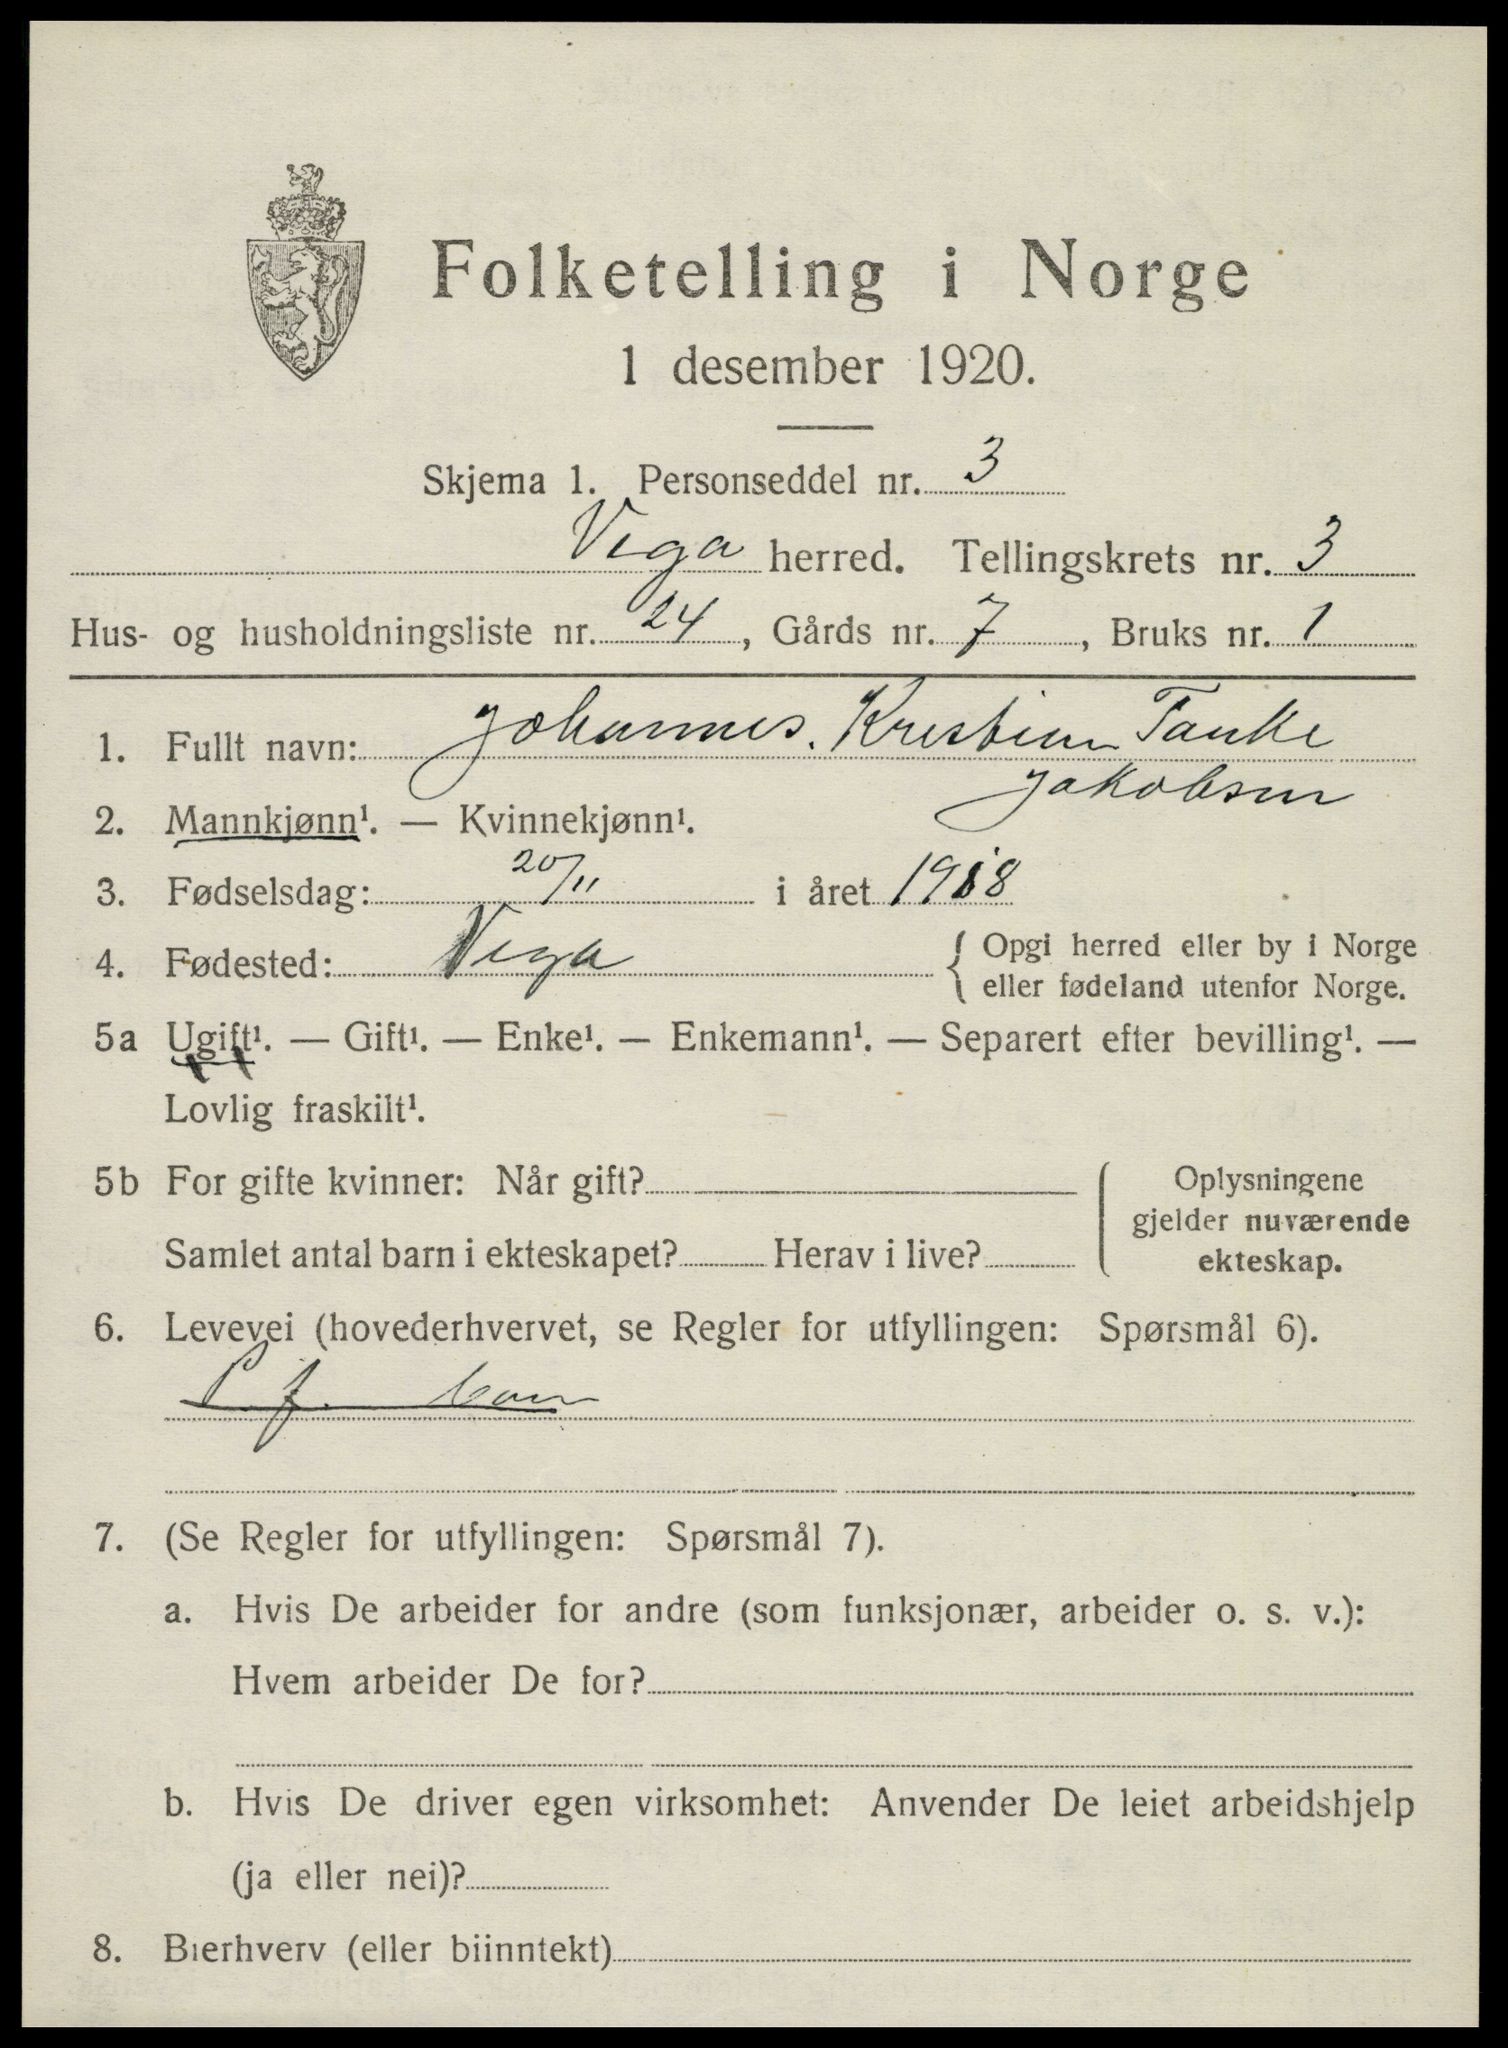 Folketelling i Norge
1 desember 1920.
Skjema 1. Personseddel nr. 3
Vega herred. Tellingskrets nr. 3
Hus- og husholdningsliste nr. 24, Gårds nr. 7, Bruks nr. 1
1. Fullt navn: Johannes. Kristian Tanke
Jakobsen
2. Mannkjønn¹. — Kvinnekjønn¹.
3. Fødselsdag: 20/11 i året 1918
4. Fødested: Vega { Opgi herred eller by i Norge
eller fødeland utenfor Norge.
5a Ugift¹. — Gift¹. — Enke¹. — Enkemann¹. — Separert efter bevilling¹. —
Lovlig fraskilt¹.
5b For gifte kvinner: Når gift?
Samlet antal barn i ekteskapet? Herav i live?
Oplysningene
gjelder nuværende
ekteskap.
6. Levevei (hovederhvervet, se Regler for utfyllingen: Spørsmål 6).
7. (Se Regler for utfyllingen: Spørsmål 7).
a. Hvis De arbeider for andre (som funksjonær, arbeider o. s. v.):
Hvem arbeider De for?
b. Hvis De driver egen virksomhet: Anvender De leiet arbeidshjelp
(ja eller nei)?
8. Bierhverv (eller biinntekt)